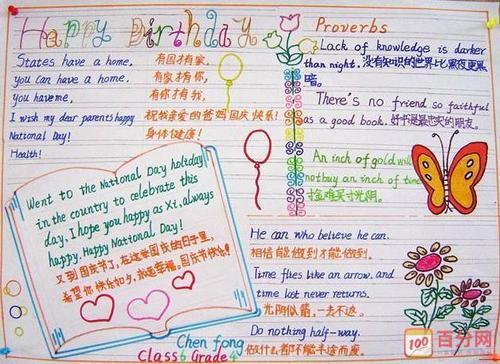 Happy Birthday
States have a home,
有国才有家,
you can have a home,
有家才有你,
You have me,
有你才有我,
I wish my dear parents happy
祝我亲爱的爸妈国庆快乐!
National Day!
身体健康!
Health!
Went to the National Day holiday
in the country to celebrate this
day, I hope you happy as Xi, always
happy. Happy National Day!
又到国庆节了,在这举国庆的日子里,
希望你快乐如夕,永远幸福。国庆节快乐!
Chen fong
Class 6 Grade 4
Proverbs
Lack of knowledge is darker
than night. 没有知识的世界比黑夜更黑
暗。
There's no friend so faithful
as a good book. 好书是最忠实的朋友。
An inch of gold will
not buy an inch of time
寸金难买寸光阴。
He can who believe he can.
相信能做到才能做到。
Time flies like an arrow, and
time lost never returns.
光阴似箭,一去不返。
Do nothing half-way.
做什么都不能半途而废。
100 百分网